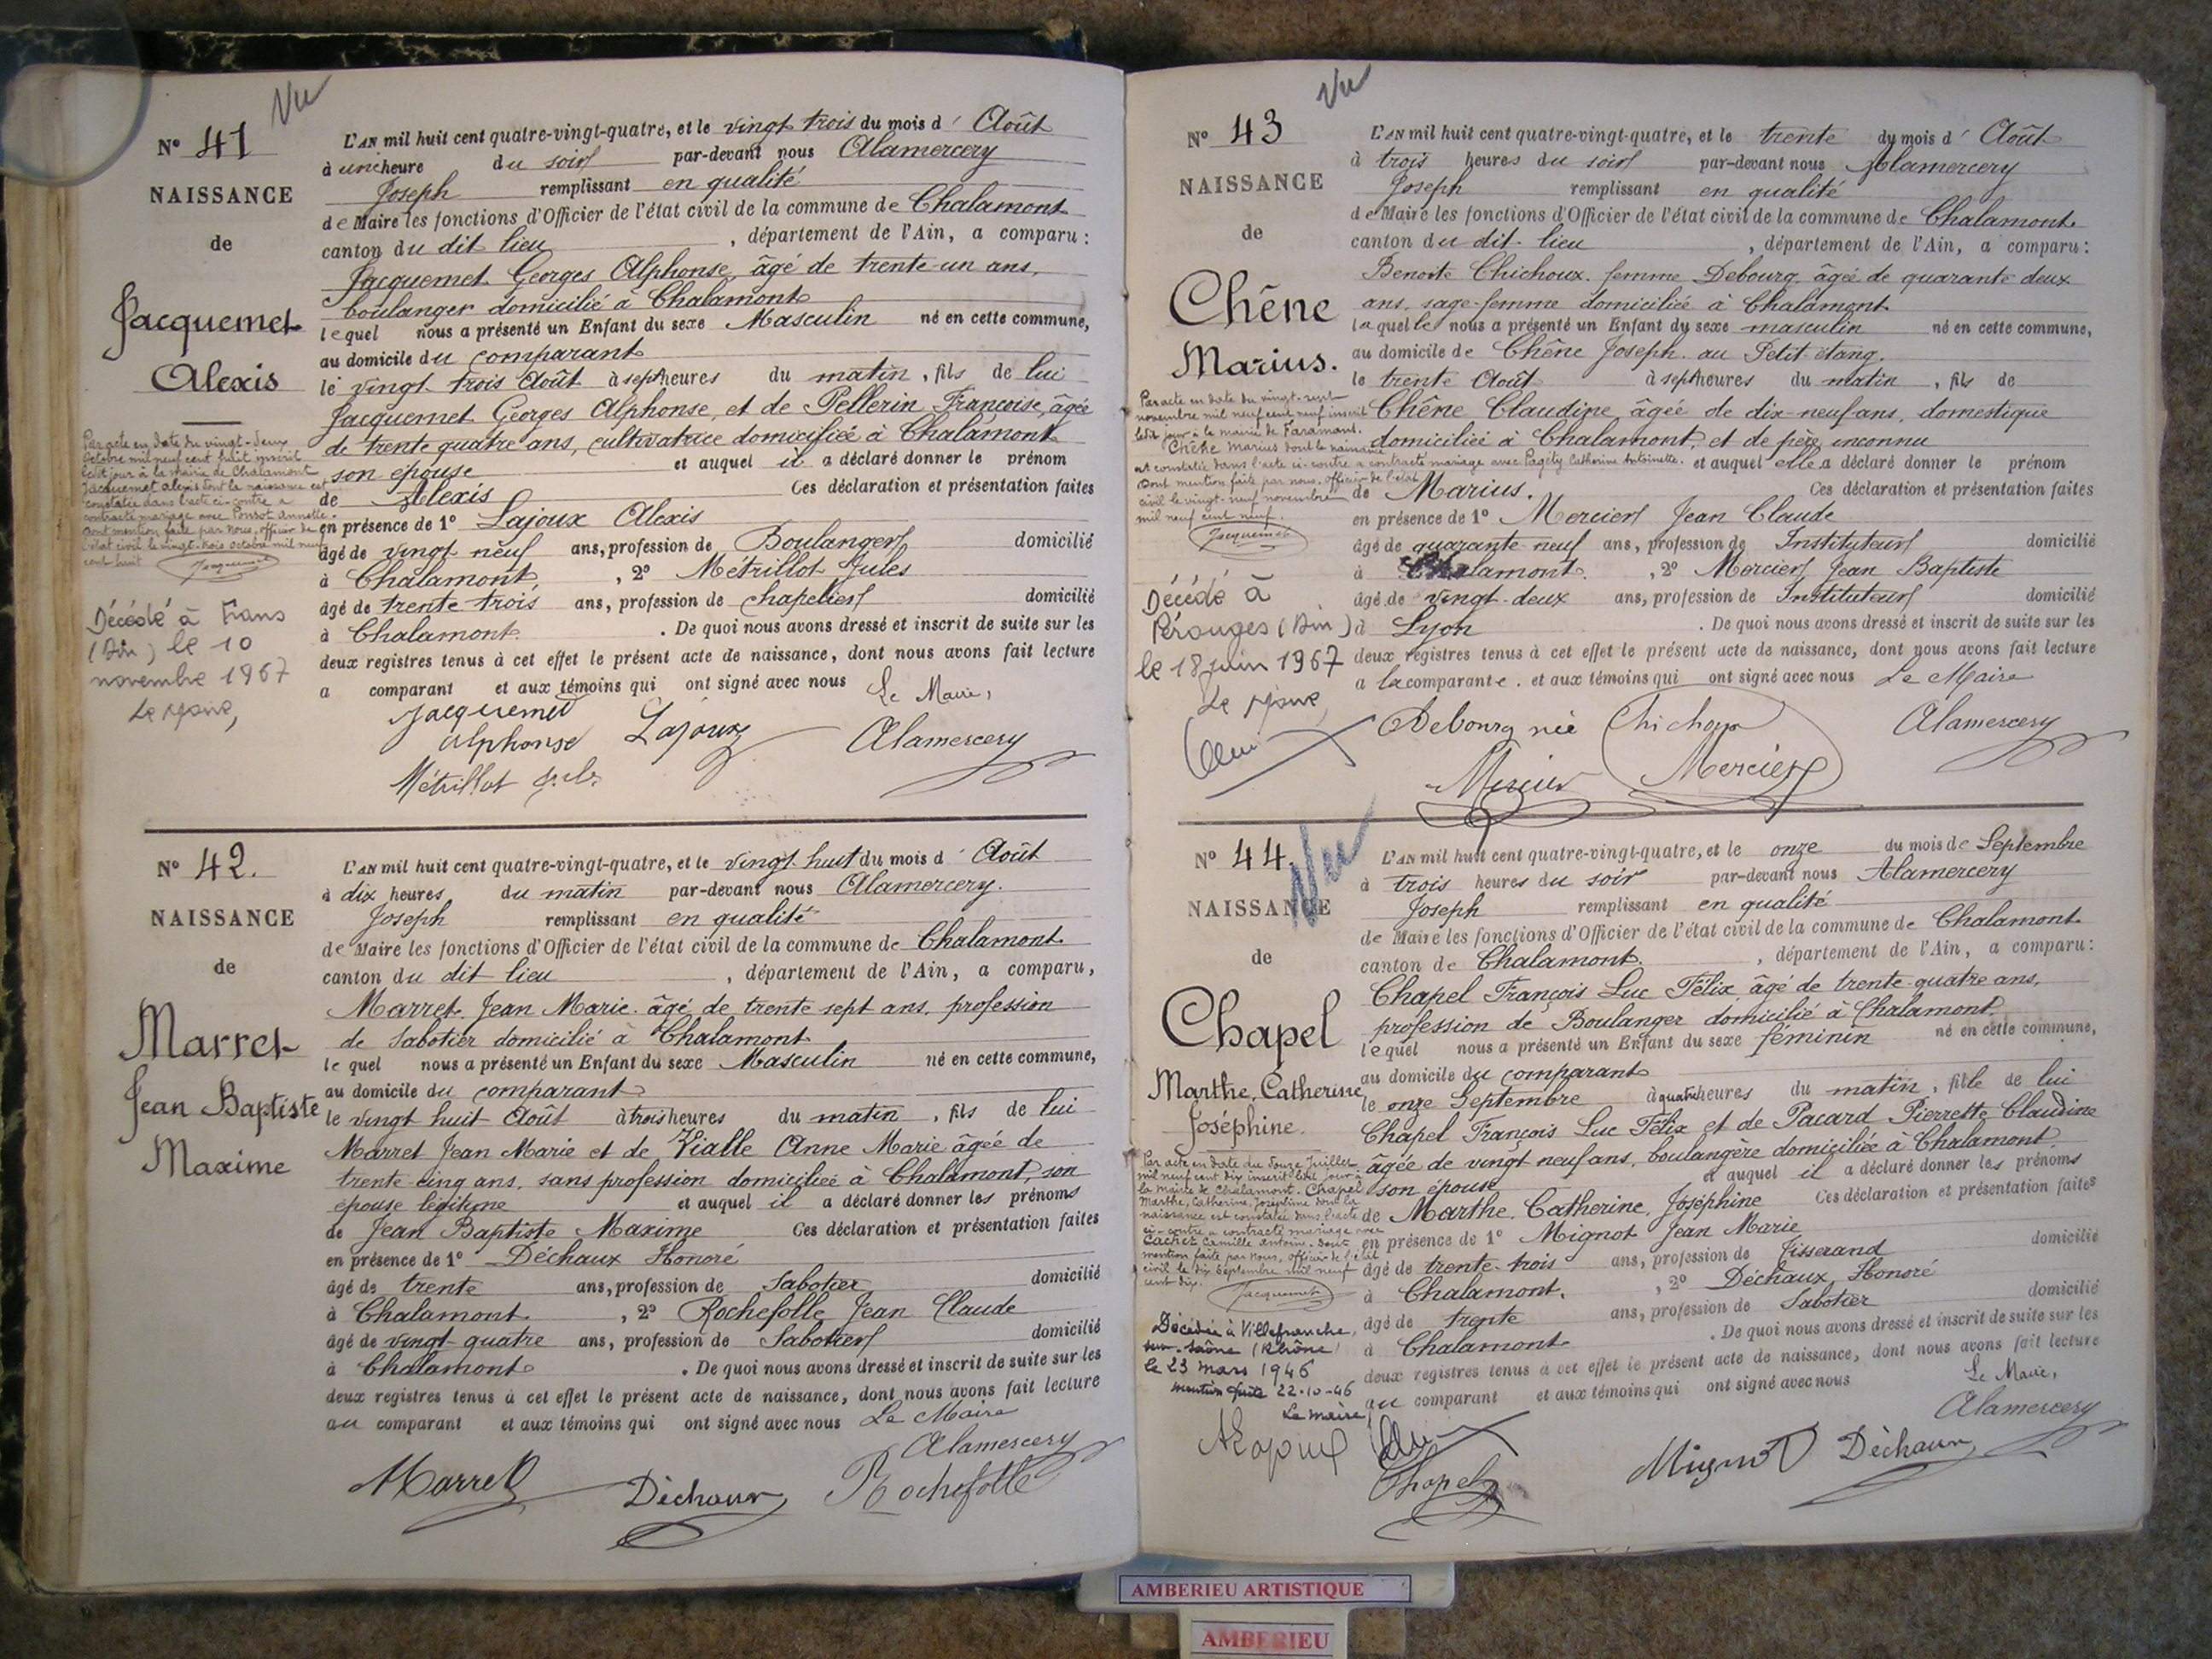 Vu
N° 41
NAISSANCE
de
Jacquemet
Alexis
Par acte en date du vingt-deux
Octobre mil neuf cent huit inscrit
ledit jour à la mairie de Chalamont
Jacquemet Alexis dont la naissance est
constatée dans l'acte ci-contre a
contracté mariage avec Ponsot Annette.
Dont mention faite par nous, officier de
l'état civil le vingt-trois octobre mil neuf
cent huit
Jacquemet
Décédé à Trans
(Ain) le 10
novembre 1967
Le Maire,
L'AN mil huit cent quatre-vingt-quatre, et le vingt trois du mois d' Août
à une heure du soir par-devant nous Alamercery
Joseph remplissant en qualité
de Maire les fonctions d'Officier de l'état civil de la commune de Chalamont
canton du dit lieu , département de l'Ain, a comparu :
Jacquemet Georges Alphonse, âgé de trente-un ans,
boulanger domicilié à Chalamont
lequel nous a présenté un Enfant du sexe Masculin né en cette commune,
au domicile du comparant
le vingt trois Août à sept heures du matin, fils de lui
Jacquemet Georges Alphonse, et de Pellerin Françoise, âgée
de trente quatre ans, cultivatrice domiciliée à Chalamont
son épouse et auquel il a déclaré donner le prénom
de Alexis Ces déclaration et présentation faites
en présence de 1° Lajoux Alexis
âgé de vingt neuf ans, profession de Boulanger domicilié
à Chalamont , 2° Métrillot Jules
âgé de trente-trois ans, profession de chapelier domicilié
à Chalamont . De quoi nous avons dressé et inscrit de suite sur les
deux registres tenus à cet effet le présent acte de naissance, dont nous avons fait lecture
a comparant et aux témoins qui ont signé avec nous Le Maire,
Jacquemet
Alphonse Lajoux Alamercery
Métrillot Jules
N° 42.
NAISSANCE
de
Marret
Jean Baptiste
Maxime
L'AN mil huit cent quatre-vingt-quatre, et le vingt huit du mois d' Août
à dix heures du matin par-devant nous Alamercery.
Joseph remplissant en qualité
de Maire les fonctions d'Officier de l'état civil de la commune de Chalamont
canton du dit lieu , département de l'Ain, a comparu,
Marret Jean Marie âgé de trente sept ans, profession
de Sabotier domicilié à Chalamont
le quel nous a présenté un Enfant du sexe Masculin né en cette commune,
au domicile du comparant
le vingt huit Août à trois heures du matin, fils de lui
Marret Jean Marie et de Vialle Anne Marie âgée de
trente-cinq ans, sans profession domiciliée à Chalamont, son
épouse légitime et auquel il a déclaré donner les prénoms
de Jean Baptiste Maxime Ces déclaration et présentation faites
en présence de 1° Déchaux Honoré
âgé de trente ans, profession de Sabotier domicilié
à Chalamont , 2° Rochefolle Jean Claude
âgé de vingt quatre ans, profession de Sabotier domicilié
à Chalamont . De quoi nous avons dressé et inscrit de suite sur les
deux registres tenus à cet effet le présent acte de naissance, dont nous avons fait lecture
au comparant et aux témoins qui ont signé avec nous Le Maire
Alamercery
Marret Déchaux Rochefolle
Vu
N° 43
NAISSANCE
de
Chêne
Marius.
Par acte en date du vingt-sept
novembre mil neuf cent neuf inscrit
ledit jour à la mairie de Faramant.
Chêne Marius dont la naissance
est constatée dans l'acte ci-contre a contracté mariage avec Pagéty Catherine Antoinette.
Dont mention faite par nous, officier de l'état
civil le vingt-neuf novembre
mil neuf cent neuf.
Jacquemet
Décédé à
Pérouges (Ain)
le 18 juin 1967
Le Maire,
L'AN mil huit cent quatre-vingt-quatre, et le trente du mois d' Août
à trois heures du soir par-devant nous Alamercery
Joseph remplissant en qualité
de Maire les fonctions d'Officier de l'état civil de la commune de Chalamont.
canton du dit-lieu , département de l'Ain, a comparu :
Benoite Chichoux femme Debourg âgée de quarante deux
ans, sage-femme domiciliée à Chalamont
laquelle nous a présenté un Enfant du sexe masculin né en cette commune,
au domicile de Chêne Joseph au Petit étang.
le trente Août à sept heures du matin, fils de
Chêne Claudine, âgée de dix-neuf ans, domestique
domiciliée à Chalamont, et de père inconnu
et auquel elle a déclaré donner le prénom
de Marius. Ces déclaration et présentation faites
en présence de 1° Mercier Jean Claude
âgé de quarante neuf ans, profession de Instituteur domicilié
à Chalamont. , 2° Mercier Jean Baptiste
âgé de vingt-deux ans, profession de Instituteur domicilié
à Lyon . De quoi nous avons dressé et inscrit de suite sur les
deux registres tenus à cet effet le présent acte de naissance, dont nous avons fait lecture
a la comparante. et aux témoins qui ont signé avec nous Le Maire
Debourg née Chichoux Alamercery
Mercier Mercier
Vu
N° 44.
NAISSANCE
de
Chapel
Marthe, Catherine
Joséphine.
Par acte en date du douze Juillet
mil neuf cent dix inscrit ledit jour à
la mairie de Chalamont. Chapel
Marthe, Catherine, Joséphine dont la
naissance est constatée dans l'acte
ci-contre a contracté mariage avec
Cachet Camille Antoine. Dont
mention faite par nous, officier de l'état
civil le dix septembre mil neuf
cent dix.
Jacquemet
Décédée à Villefranche,
sur-Saône (Rhône)
le 23 mars 1946
mention faite 22-10-46
Le maire,
L'AN mil huit cent quatre-vingt-quatre, et le onze du mois de Septembre
à trois heures du soir par-devant nous Alamercery
Joseph remplissant en qualité
de Maire les fonctions d'Officier de l'état civil de la commune de Chalamont
canton de Chalamont. , département de l'Ain, a comparu :
Chapel François Luc Félix, âgé de trente-quatre ans,
profession de Boulanger domicilié à Chalamont.
lequel nous a présenté un Enfant du sexe féminin né en cette commune,
au domicile du comparant
le onze Septembre à quatre heures du matin, fille de lui
Chapel François Luc Félix et de Pacard Pierrette Claudine
âgée de vingt neuf ans, boulangère domiciliée à Chalamont.
son épouse et auquel il a déclaré donner les prénoms
de Marthe, Catherine, Joséphine Ces déclaration et présentation faites
en présence de 1° Mignot Jean Marie
âgé de trente-trois ans, profession de Tisserand domicilié
à Chalamont. , 2° Déchaux Honoré
âgé de trente ans, profession de Sabotier domicilié
à Chalamont . De quoi nous avons dressé et inscrit de suite sur les
deux registres tenus à cet effet le présent acte de naissance, dont nous avons fait lecture
au comparant et aux témoins qui ont signé avec nous Le Maire,
Alamercery
Chapel Mignot Déchaux
AMBERIEU ARTISTIQUE
AMBERIEU